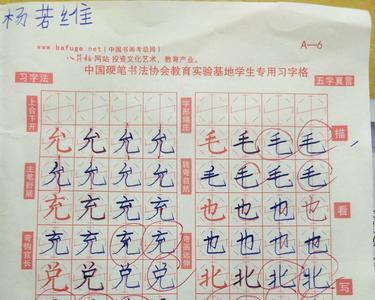 杨若维
www.bafuge.net(中国书画考级网)
A—6
八符格网站 投资文化艺术、教育产业。
中国硬笔书法协会教育实验基地学生专用习字格
习字法
五字真言
上合下开
字形端庄
允 允 允 允 毛 毛 毛 毛
描
主笔舒展
转弯自然
允 允 允 允 毛 毛 毛 毛
充 充 充 充 也 也 也 也
看
弯钩宜长
弯画远伸
充 充 充 充 也 也 也 也
兑 兑 兑 兑 北 北 北 北
写